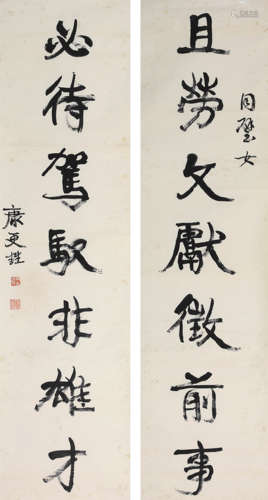 同璧女
且勞文獻徵前事
必待駕馭非雄才
康更甡